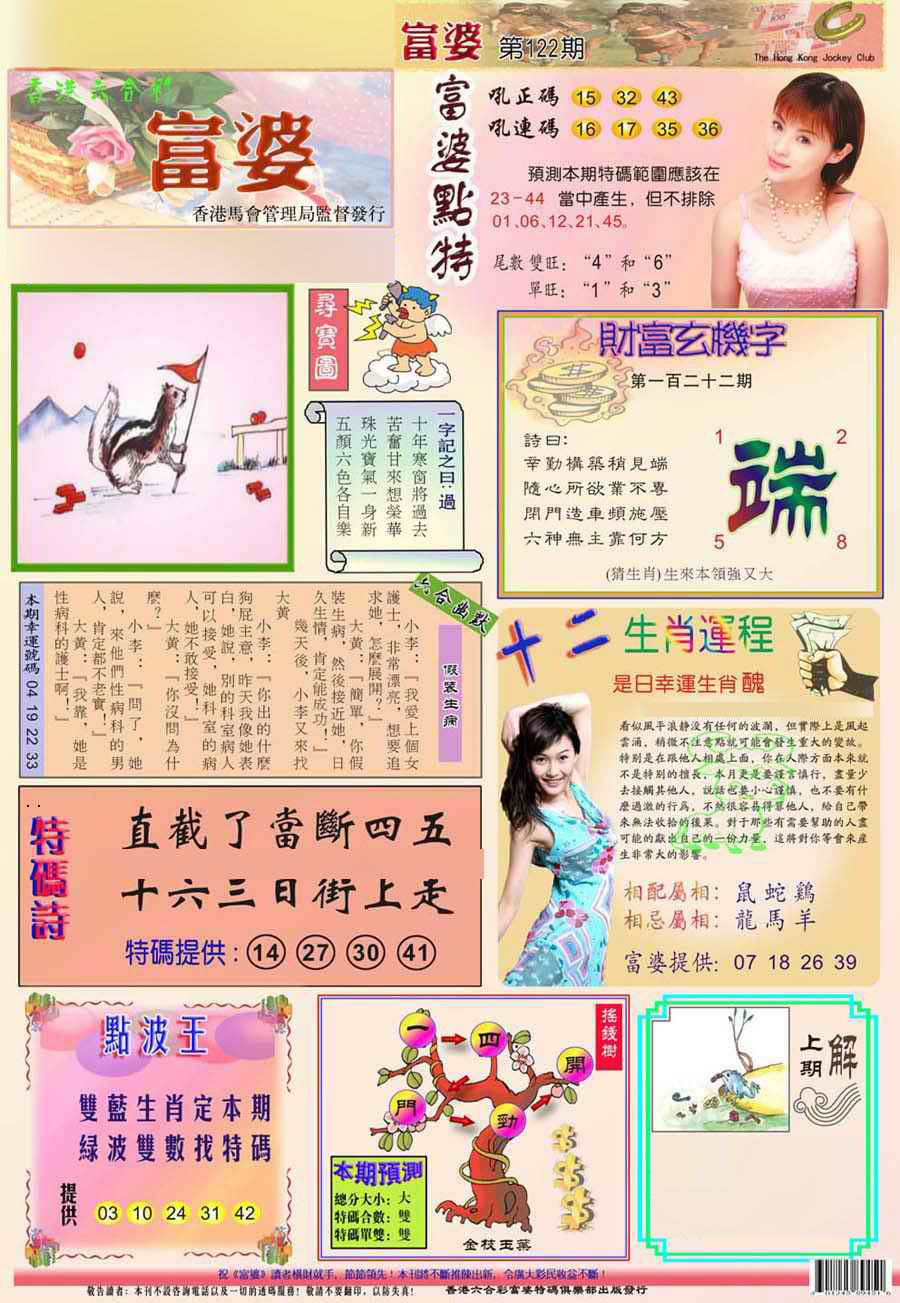 富婆 第122期
The Hong Kong Jockey Club
香港六合彩
富婆
香港馬會管理局監督發行
富婆點特
吼正碼 15 32 43
吼連碼 16 17 35 36
預測本期特碼範圍應該在
23-44 當中產生，但不排除
01、06、12、21、45。
尾數雙旺：“4”和“6”
單旺：“1”和“3”
尋寶圖
一字記之曰：過
十年寒窗將過去
苦奮甘來想榮華
珠光寶氣一身新
五顏六色各自樂
財富玄機字
第一百二十二期
詩曰：
幸勤構築稍見端
隨心所欲業不專
閉門造車頻施壓
六神無主靠何方
1 2
端
5 8
(猜生肖)生來本領強又大
六合幽默
假裝生病
小李：『我愛上個女
護士，非常漂亮，想要追
求她，怎麼展開？』
大黃：『簡單，你假
裝生病，然後接近她，日
久生情，肯定能成功！』
幾天後，小李又來找
大黃
小李：『你出的什麼
狗屁主意，昨天我像她表
白，她說，別的科室病人
可以接受，她科室的病
人，她不敢接受！』
大黃：『你沒問為什
麼？』
小李：『問了，她
說，來他們性病科的男
人，肯定都不老實！』
大黃：『我靠，她是
性病科的護士啊！』
本期幸運號碼 04 19 22 33
十二生肖運程
是日幸運生肖 醜
看似風平浪静没有任何的波瀾，但實際上是風起
雲涌，稍微不注意點就可能會發生重大的變故。
特别是在跟他人相處上面，你在人際方面本來就
不是特别的擅長，本月更是要謹言慎行，盡量少
去接觸其他人，説話也要小心謹慎，也不要有什
麽過激的行爲，不然很容易得罪他人，給自己帶
來無法收拾的後果。對于那些有需要幫助的人盡
可能的獻出自己的一份力量，這將對你等會來産
生非常大的影響。
相配屬相：鼠蛇鷄
相忌屬相：龍馬羊
富婆提供：07 18 26 39
特碼詩
直截了當斷四五
十六三日街上走
特碼提供：14 27 30 41
點波王
雙藍生肖定本期
緑波雙數找特碼
提供 03 10 24 31 42
搖錢樹
一 四 開
門 勁
本期預測
總分大小：大
特碼合數：雙
特碼單雙：雙
金枝玉葉
上期 解
祝《富婆》讀者橫財就手，節節領先！本刊將不斷推陳出新，令廣大彩民收益不斷！
敬告讀者：本刊不設咨詢電話以及一切的透碼服務！敬請不要翻印，以防失真！ 香港六合彩富婆特碼俱樂部出版發行